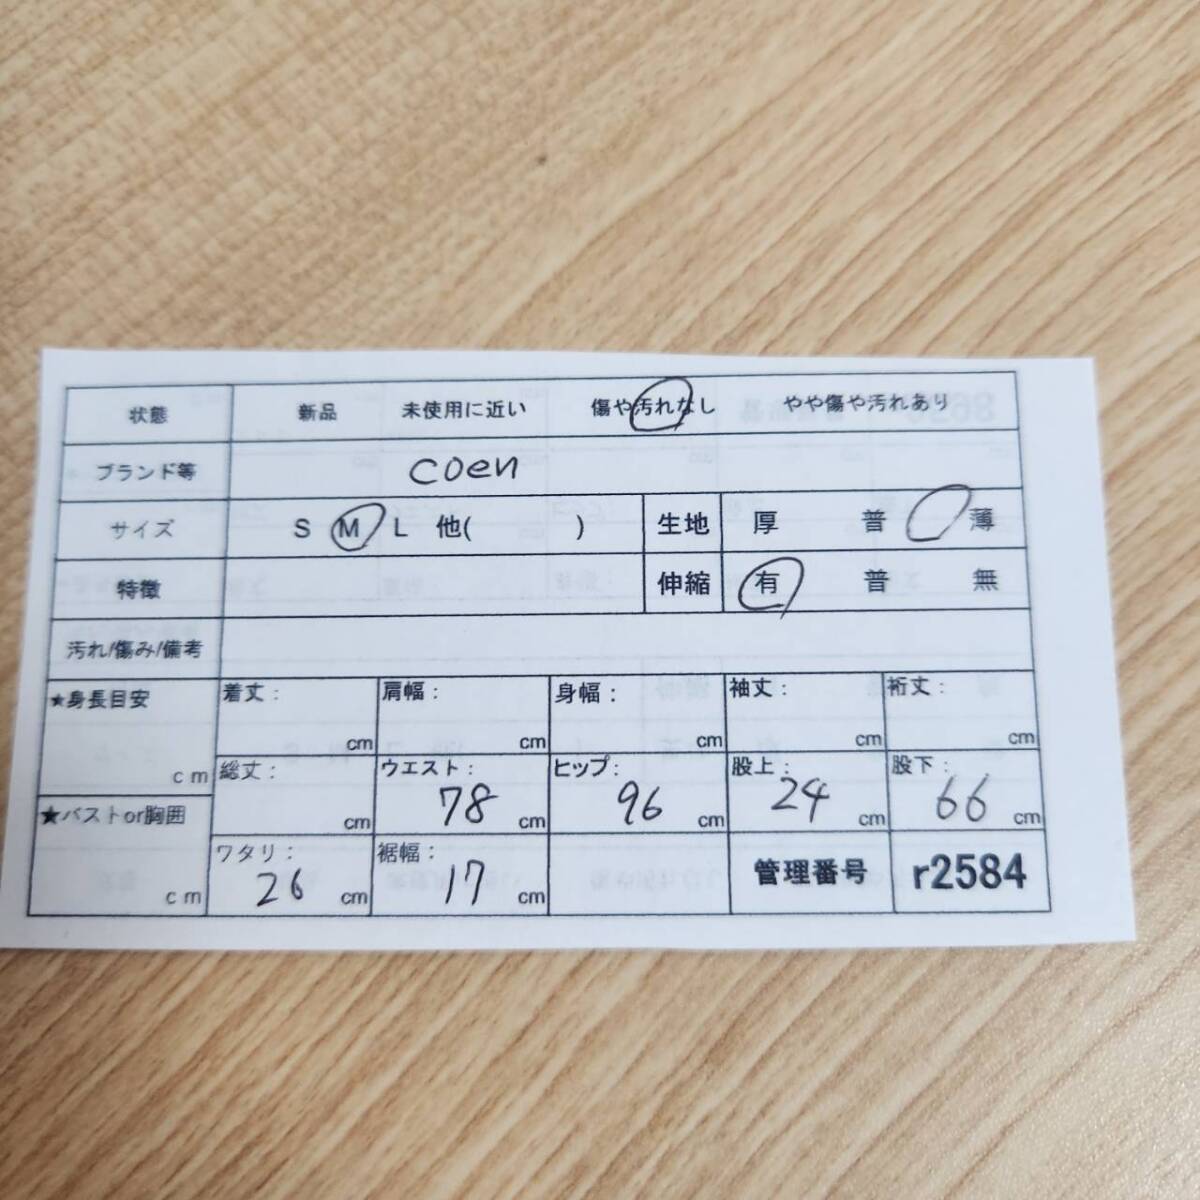 状態 新品 未使用に近い 傷や汚れなし やや傷や汚れあり
ブランド等 coen
サイズ S M L 他( ) 生地 厚 普 薄
特徴 伸縮 有 普 無
汚れ/傷み/備考
★身長目安 cm 着丈: cm 肩幅: cm 身幅: cm 袖丈: cm 裄丈: cm
総丈: cm ウエスト: 78 cm ヒップ: 96 cm 股上: 24 cm 股下: 66 cm
★バストor胸囲 cm ワタリ: 26 cm 裾幅: 17 cm 管理番号 r2584